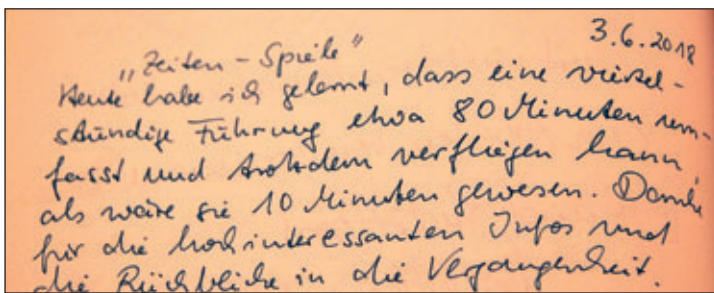 3.6.2018
„Zeiten – Spiele“
Heute habe ich gelernt, dass eine viertel-
stündige Führung etwa 80 Minuten um-
fasst und trotzdem verfliegen kann,
als wäre sie 10 Minuten gewesen. Danke
für die hochinteressanten Infos und
die Rückblicke in die Vergangenheit.